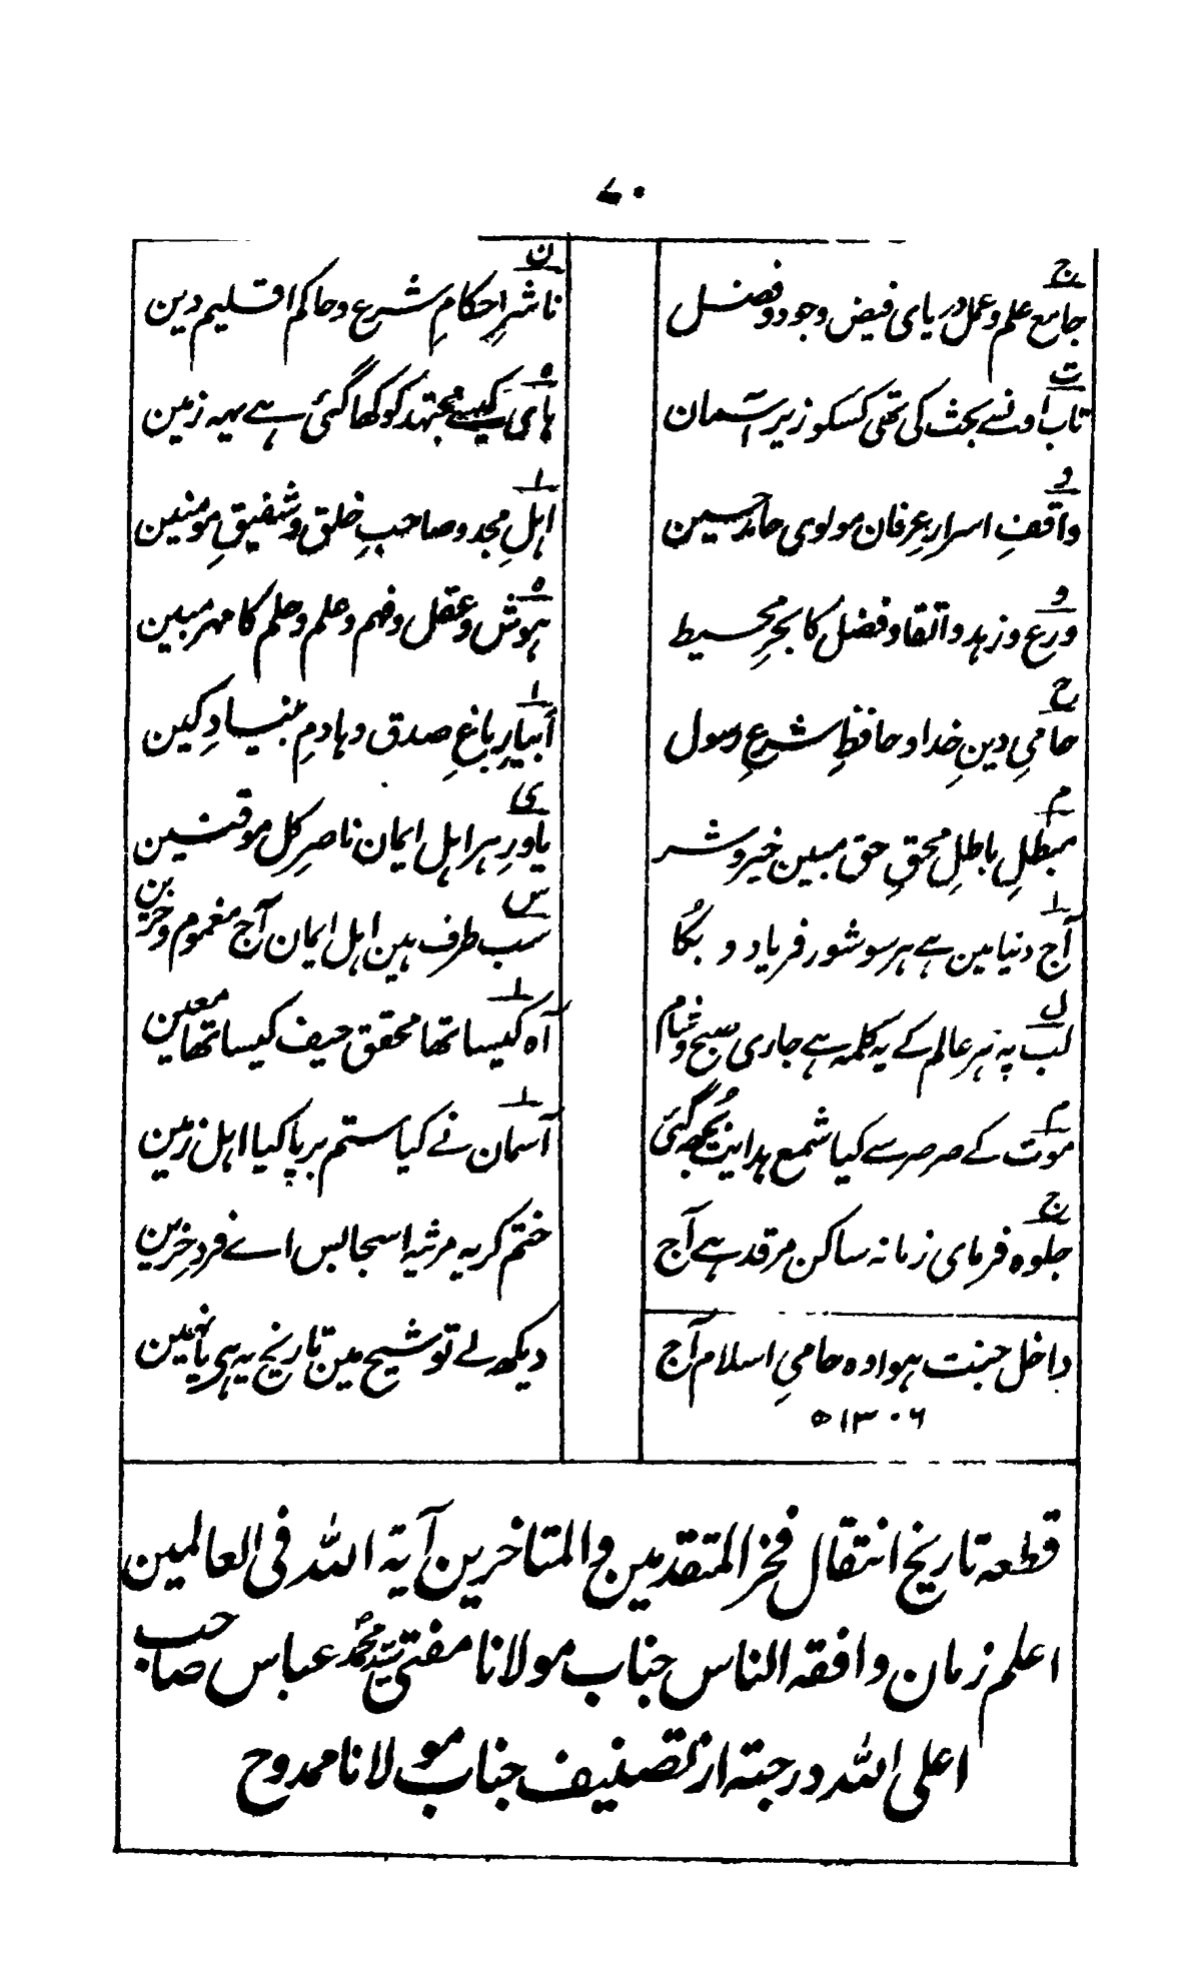 ۷۰
ج ن
جامع علم و عمل دریای فیض وجود و فضل ناشرِ احکامِ شرع و حاکم اقلیم دین
ت ہ
تاب اونسے بحث کی تھی کسکو زیر آسمان ہائے کیسے مجتہد کو کھا گئی ہے یہہ زمین
و ا
واقفِ اسرارِ عرفان مولوی حامد حسین اہلِ مجد و صاحبِ خلق و شفیقِ مومنین
و ہ
ورع و زہد و اتقا و فضل کا بحرِ محیط ہوش و عقل و فہم و علم و حلم کا مہر مبین
ح ا
حامیِ دینِ خدا و حافظِ شرعِ رسول آبیارِ باغِ صدق و ہادمِ بنیادِ کین
م ی
مبطلِ باطلِ محقِ حق مبین خیر و شر یاورِ ہر اہل ایمان ناصرِ کل موقنین
ا س
آج دنیا مین ہے ہر سو شور فریاد و بُکا سب طرف ہین اہل ایمان آج مغموم و حزین
ل ا
لب پہ ہر عالم کے یہ کلمہ ہے جاری صبح و شام آہ کیسا تھا محقق حیف کیسا تھا معین
م ا
موت کے صرصر سے کیا شمع ہدایت بُجھ گئی آسمان نے کیا ستم برپا کیا اہل زمین
ج
جلوہ فرمای زمانہ ساکن مرقد ہے آج ختم کر یہ مرثیہ اسجا بس اے فردِ حزین
داخل جنت ہوا وہ حامیِ اسلام آج دیکھ لے توشیح مین تاریخ یہ ہے یا نہین
۱۳۰۶ھ
قطعہ تاریخ انتقال فخر المتقدمین والمتاخرین آیۃ اللہ فی العالمین
اعلم زمان و افقہ الناس جناب مولانا مفتی سید محمد عباس صاحب
اعلی اللہ درجتہ از تصنیف جناب مولانا ممدوح